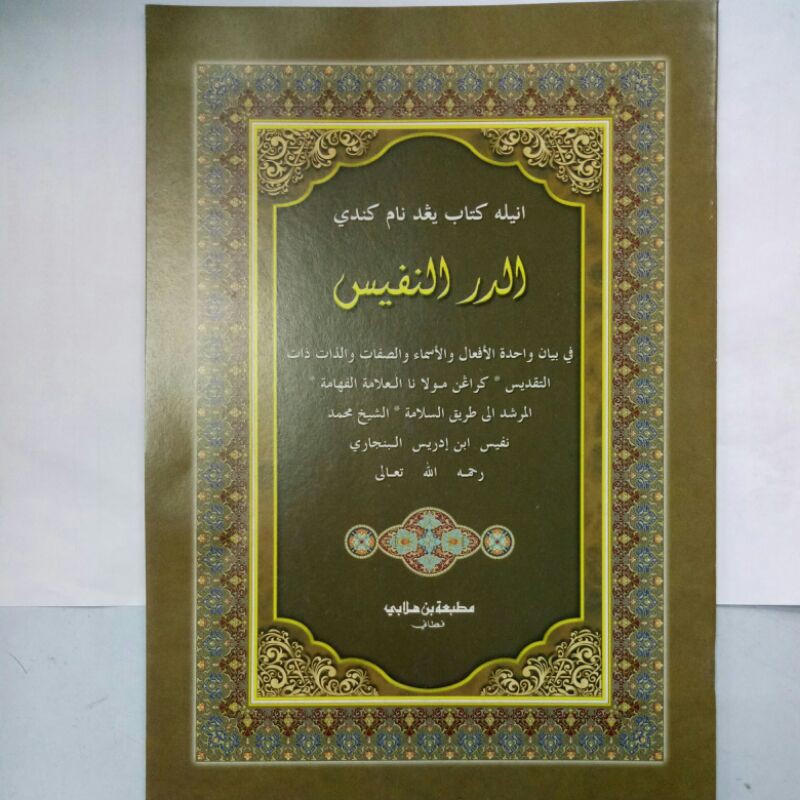 انيله كتاب يڠد نام كندي
الدر النفيس
في بيان واحدة الأفعال والأسماء والصفات والذات ذات
التقديس * كراڠن مولا نا العلامة الفهامة *
المرشد الى طريق السلامة * الشيخ محمد
نفيس ابن إدريس البنجاري
رحمه الله تعالى
مطبعة بن هلابي
فطاني